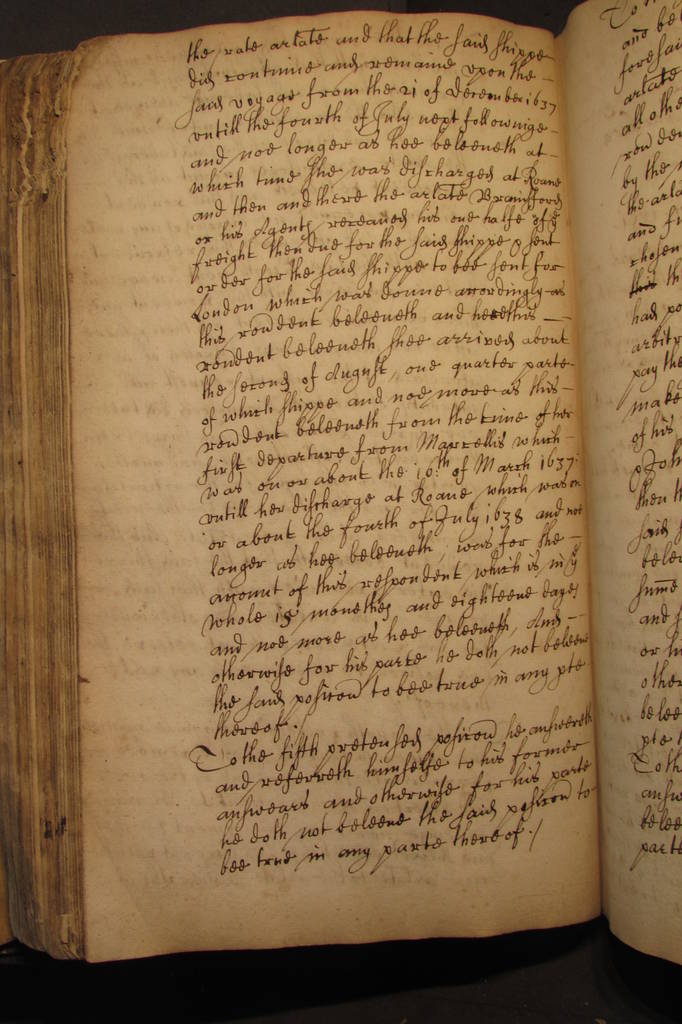 the rate arlate and that the said shippe
did continue and remaine vpon the
said voyage from the 21 of December 1637
vntill the fourth of July next followinge
and noe longer as hee beleeveth at
which time she was discharged at Roane
and then and there the arlate Bramfford
or his Agents receaued his one halfe of ye
freight then due for the said shippe & sent
order for the said shippe to bee sent for
London which was donne accordingly as
this rondent beleeveth and
rondent beleeveth shee arrived about
the second of August, one quarter parte
of which shippe and noe more as this
rendent beleeveth from the time of her
first departure from Marcellis which
was on or about the 16th of March 1637
vntill her discharge at Roane which was on
or about the fourth of July 1638 and not
longer as hee beleeveth, was for the
account of this respondent which is in ye
whole 15 monethes and eighteene dayes
and noe more as hee beleeveth, And
otherwise for his parte he doth not beleeve
the said posicon to bee true in any pte
thereof ./
To the fifth pretensed posicon he answereth
and referreth himselfe to his former
answears and otherwise for his parte
he doth not beleeve the said posicon to
bee true in any parte thereof :/
and
all othe
by the
the arla
and
chosen
the
had
pay the
make
of his
then
said
and
or
other
pte
To th
parte